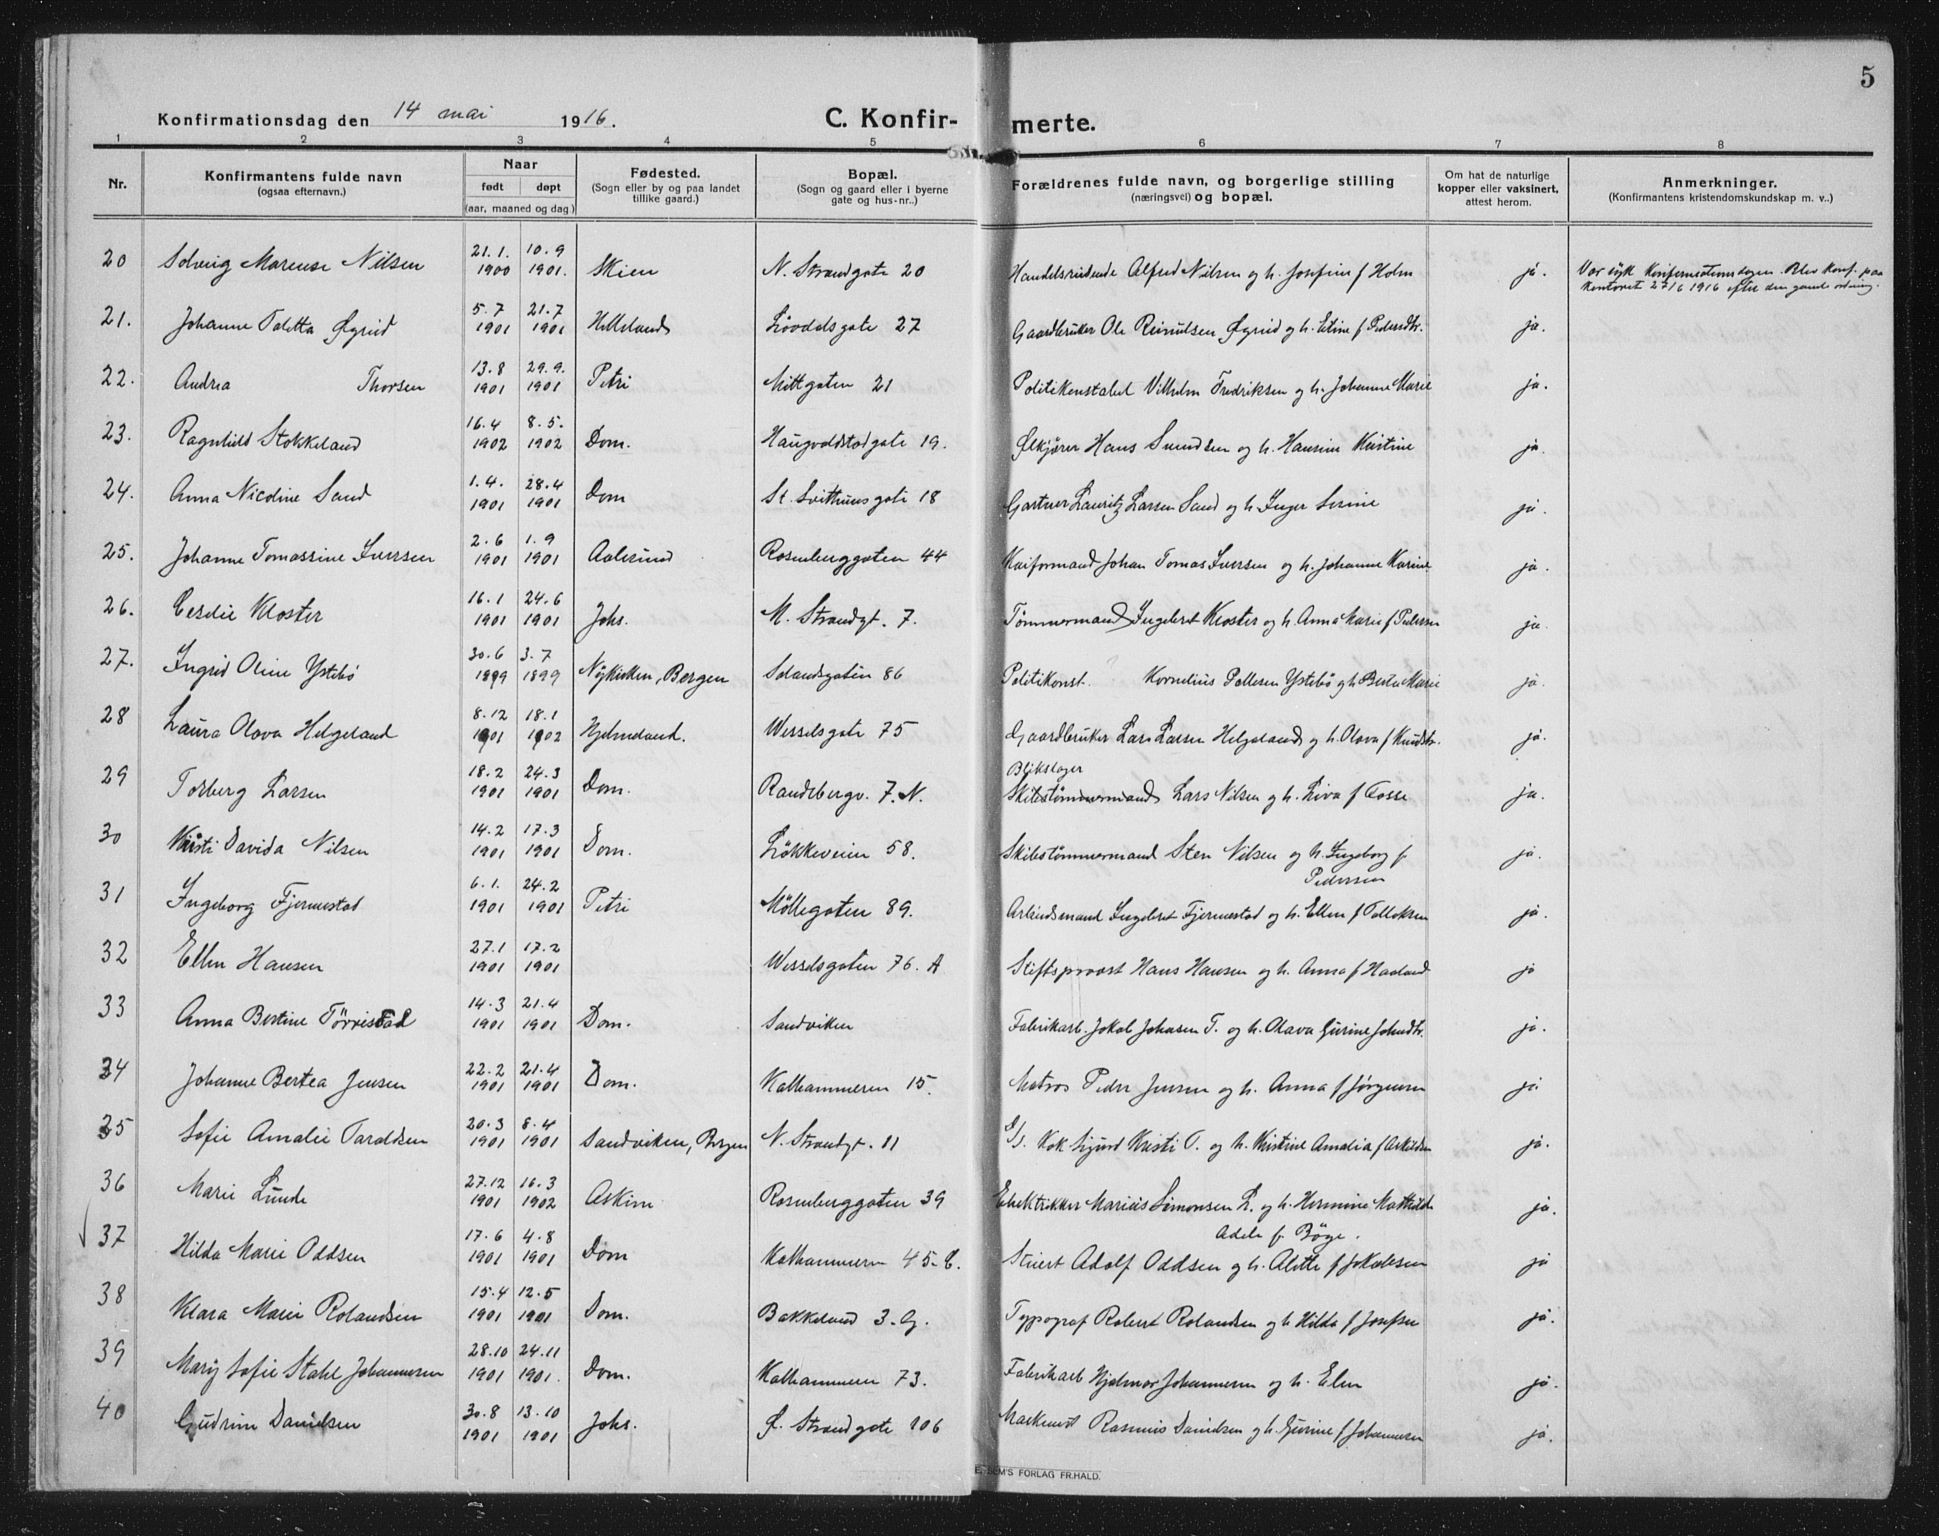 5
Konfirmationsdag den 14 mai 1916. C. Konfir- merte.
1 2 3 4 5 6 7 8
Nr. Konfirmantens fulde navn (ogsaa efternavn.) Naar født døpt (aar, maaned og dag.) Fødested. (Sogn eller by og paa landet tillike gaard.) Bopæl. (Sogn og gaard eller i byerne gate og hus-nr.) Forældrenes fulde navn, og borgerlige stilling (næringsvei) og bopæl. Om hat de naturlige kopper eller vaksinert, attest herom. Anmerkninger. (Konfirmantens kristendomskundskap m. v..)
20 Solveig Marense Nilsen 21.1. 1900 10.9 1901. Skien N. Strandgate 20 Handelsreisende Alfred Nilsen og h. Josefine f Holm ja. Var syk konfirmationsdagen. Blev konf. paa kontoret 27/6 1916 efter den gamle ordning.
21. Johanne Taletta Øgreid 5.7 1901 21.7 1901 Helleland Løvdalsgate 27 Gaardbruker Ole Reinulsen Øgreid og h. Eline f Pedersdtr. ja.
22. Andrea Thorsen 13.8 1901 29.9. 1901 Petri Midtgaten 21 Politikonstabel Vilhelm Fredriksen og h. Johanne Marie ja.
23. Ragnhild Stokkeland 16.4 1902 8.5. 1902 Dom. Haugvaldstadgate 19. Ølkjører Hans Svendsen og h. Hansine Kristine ja.
24. Anna Nicoline Sand 1.4. 1901 28.4 1901 Dom St. Svithunsgate 18 Gartner Lauritz Larsen Sand og h. Inger Serine ja.
25. Johanne Tomassine Iversen 2.6 1901 1.9 1901 Aalesund Rosenberggaten 44 Kaiformand Johan Tomas Iversen og h. Johanne Karine ja.
26. Cecelie Kloster 16.1 1901 24.6 1901 Johs. N. Strandgt. 7. Tømmermand Ingebret Kloster og h. Anna Marie f Pedersen ja.
27. Ingrid Oline Ystebø 30.6 1899 3.7 1899 Nykirken, Bergen Solandsgaten 86 Politikonst. Kornelius Pallesen Ystebø og h Berta Marie ja.
28 Laura Olava Helgeland 8.12 1901 18.1 1902 Hjelmeland. Wesselsgate 75 Gaardbruker Lars Larsen Helgeland og h. Olava f Knudsdtr. ja.
29 Torberg Larsen 18.2 1901 24.3 1901 Dom. Randebergv. 7. N. Blikslager Skibstømmermand Lars Nilsen og h. Liva f Fosse ja.
30 Kristi Davida Nilsen 14.2 1901 17.3 1901 Dom. Løkkeveien 58. Skibstømmermand Sten Nilsen og h. Ingeborg f. Pedersen ja.
31 Ingeborg Fjermestad 6.1. 1901 24.2 1901 Petri Møllegaten 89. Arbeidsmand Ingebret Fjermestad og h. Ellen f Tollaksen ja.
32 Ellen Hansen 27.1 1901 17.2 1901 Wesselsgaten 76. A Stiftsprovst Hans Hansen og h. Anna f Haaland ja
33 Anna Bertine Tørrestad 14.3 1901 21.4 1901 Dom. Sandviken Fabrikarb. Jakob Johnsen T. og h. Olava Gurine Johnsdtr. ja.
34 Johanne Bertea Jensen 22.2 1901 21.4 1901 Dom. Kalhammeren 15. Matros Peder Jensen og h. Anna f Jørgensen ja.
35 Sofie Amalie Taraldsen 20.3 1901 8.4 1901 Sandviken, Bergen N. Strandgt. 11 G/S. Kok Sigurd Kristi T. og h. Kristine Amalia f Askildsen ja.
36 Marie Lunde 27.12 1901 16.3 1902 Askim Rosenberggaten 39 Elektrikker Marius Simonsen L. og h. Hermine Mathilde Adele f. Bøge. ja.
37 Hilda Marie Oddsen 17.6 1901 4.8 1901 Dom Kalhammeren 45. C. Stuert Adolf Oddsen og h. Alette f Jakobsen ja
38 Klara Marie Rolandsen 15.4 1901 12.5 1901 Dom. Bakkeland 3. G. Typograf Robert Rolandsen og h Hilda f Josefsen ja.
39 Mary Sofie Stahl Johannesen 28.10 1901 24.11 1901. Dom. Kalhammeren 73. Fabrikarb Hjalmar Johannesen og h. Elen ja.
40 Gudrun Danielsen 30.8 1901 13.10 1901 Johs. Ø. Strandgate 106 Maskinist Rasmus Danielsen og h. Gurine f Johannesen ja.
E. SEM'S FORLAG FR.HALD.